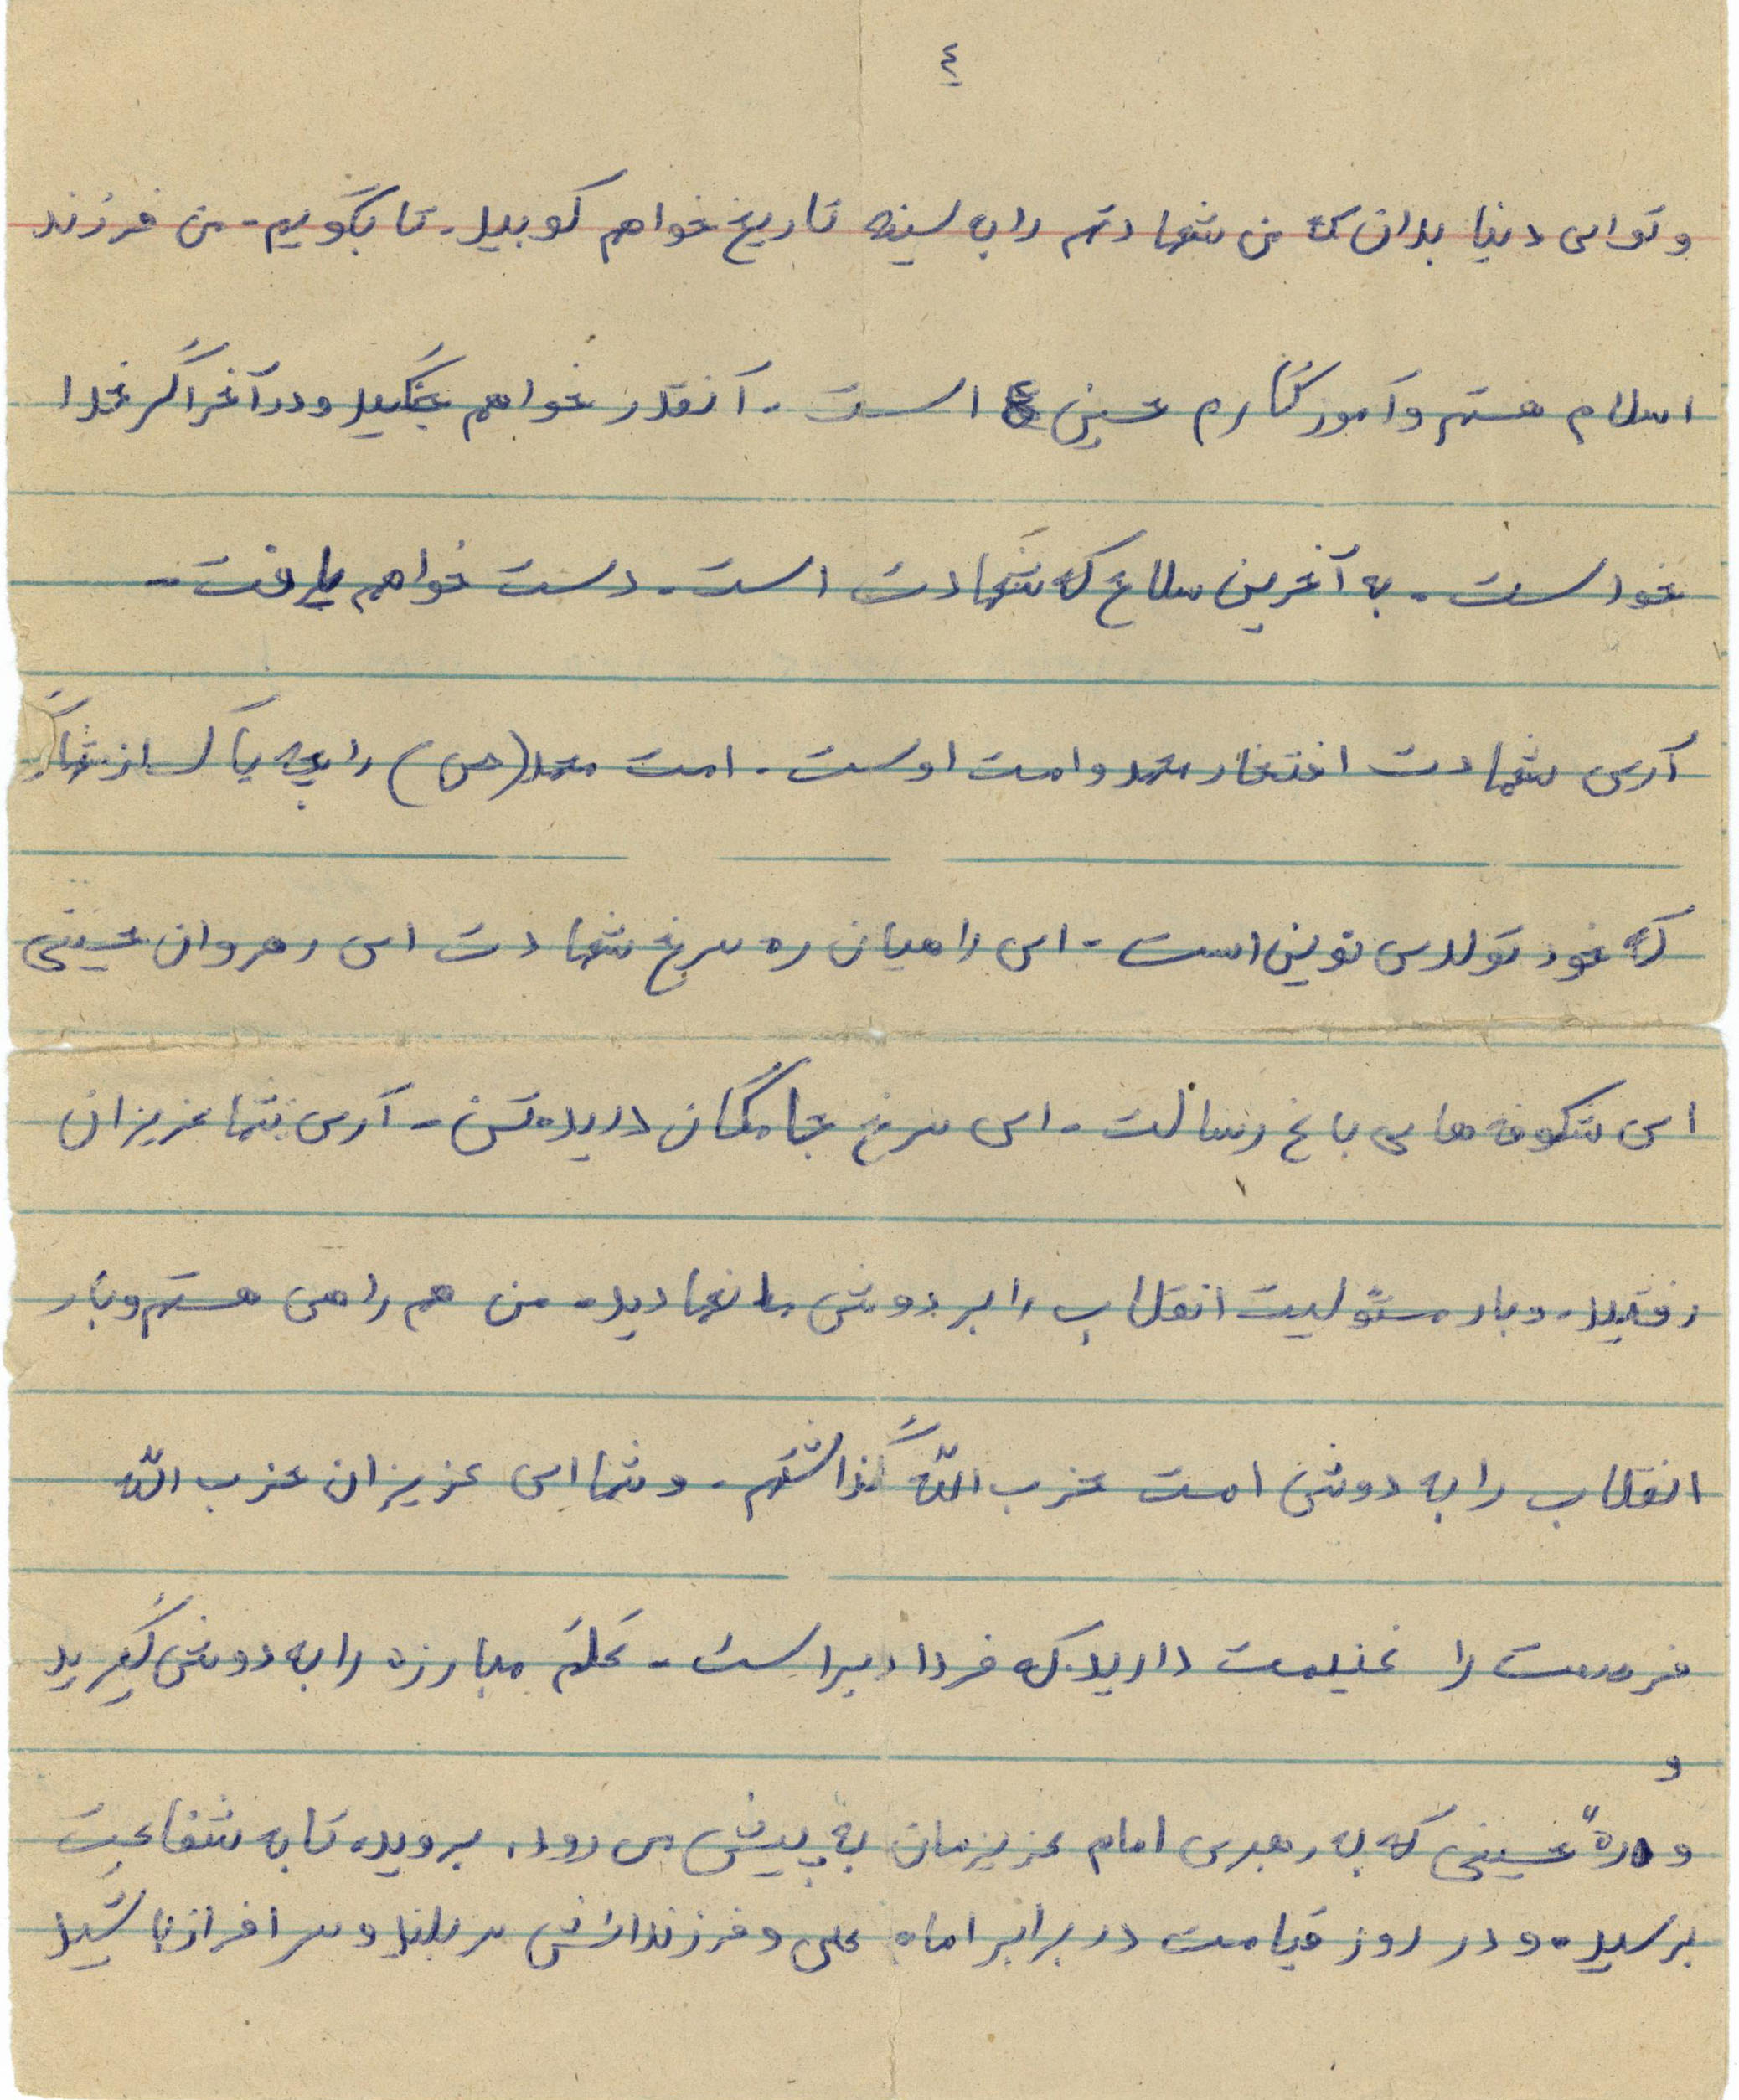 ٤
و تو ای دنیا بدان که من شهادتم را به سینه تاریخ خواهم کوبید. تا بگویم. من فرزند
اسلام هستم و آموزگارم حسین ع است. آنقدر خواهم جنگید و در آخر اگر خدا
خواست. به آخرین سلاح که شهادت است. دست خواهم یافت.
آری شهادت افتخار محمد و امت اوست. امت محمد (ص) را چه باک از
که خود تولدی نوین است. ای راهیان ره سرخ شهادت ای رهروان حسینی
ای شکوفه های باغ رسالت. ای سرخ جامگان دریده تن. آری شما عزیزان
رفتید. و بار مسئولیت انقلاب را بر دوش ما نهادید. من هم راهی هستم و بار
انقلاب را به دوش امت حزب الله گذاشتم. و شما ای عزیزان حزب الله
فرصت را غنیمت دارید که فردا دیر است. عَلَم مبارزه را به دوش گیرید
و
و ره حسینی که به رهبری امام عزیزمان به پیش می رود، بروید. تا به شفاعت
برسید. و در روز قیامت در برابر امام علی و فرزندانش سربلند و سرافراز باشید